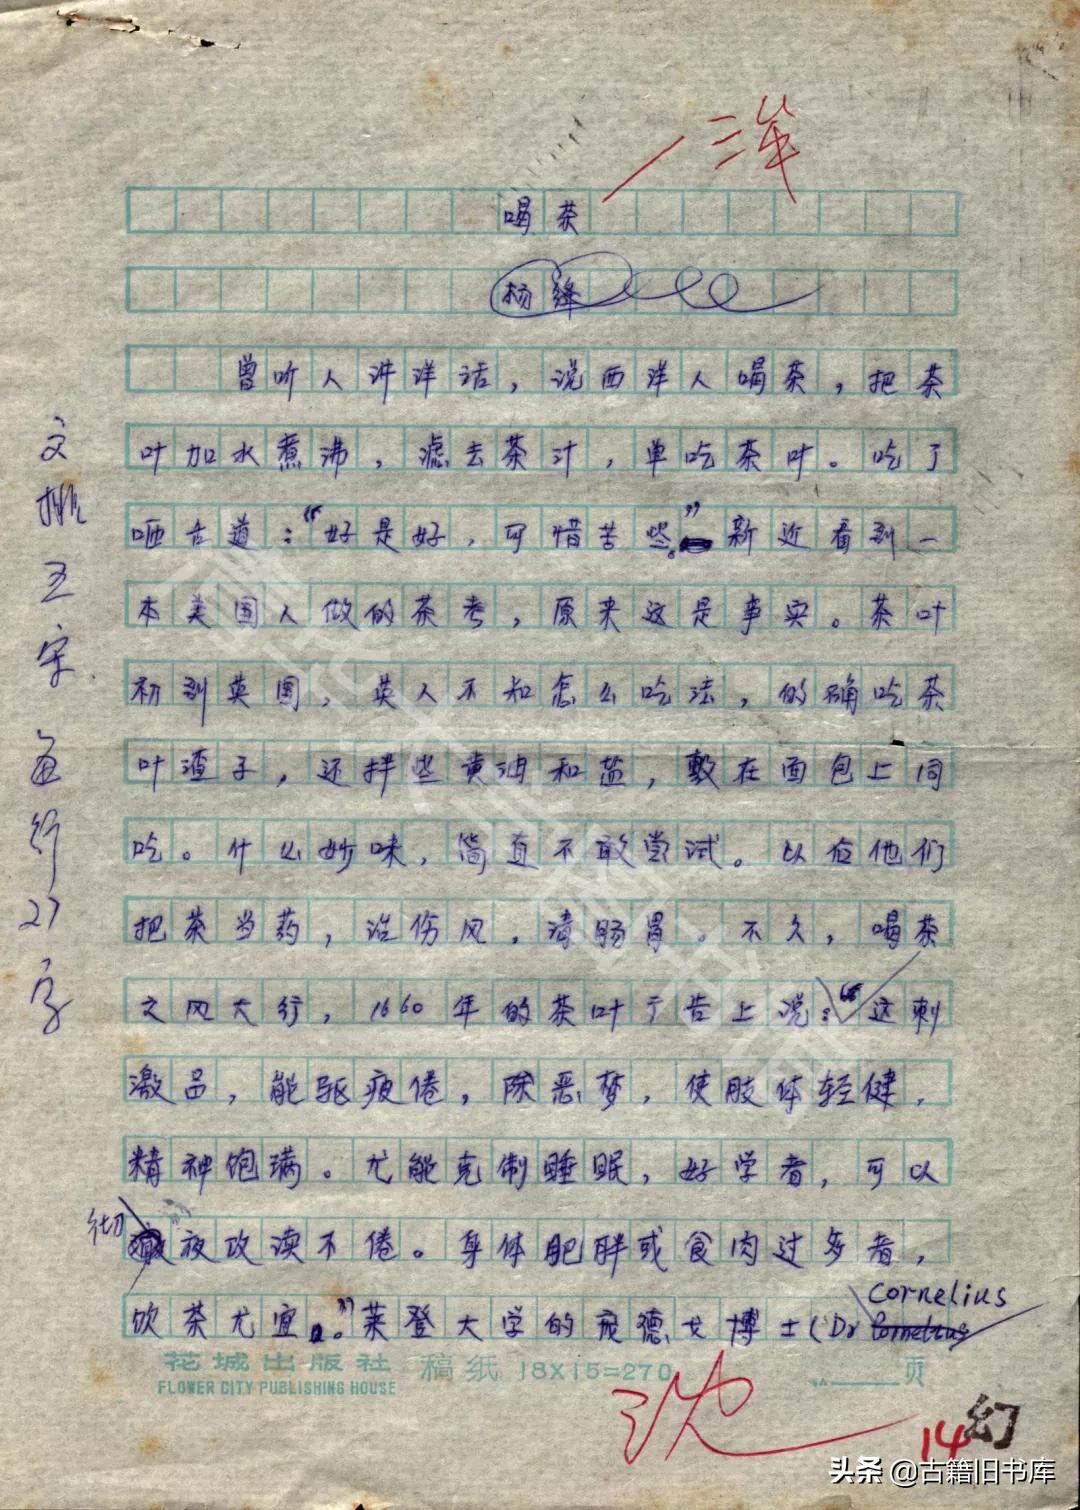 三年
喝茶
杨绛
曾听人讲洋话，说西洋人喝茶，把茶
叶加水煮沸，滤去茶汁，单吃茶叶。吃了
咂舌道：“好是好，可惜苦些。”新近看到一
本美国人做的茶考，原来这是事实。茶叶
初到英国，英人不知怎么吃法，的确吃茶
叶渣子，还拌些黄油和盐，敷在面包上同
吃。什么妙味，简直不敢尝试。以后他们
把茶当药，治伤风，清肠胃。不久，喝茶
之风大行，1660年的茶叶广告上说：“这刺
激品，能驱疲倦，除恶梦，使肢体轻健，
精神饱满。尤能克制睡眠，好学者，可以
彻夜攻读不倦。身体肥胖或食肉过多者，
饮茶尤宜。”莱登大学的庞德戈博士（Dr Cornelius
文排五宋每行27字
花城出版社 稿纸 18X15=270 页
FLOWER CITY PUBLISHING HOUSE
沈
14
幻
头条 @古籍旧书库